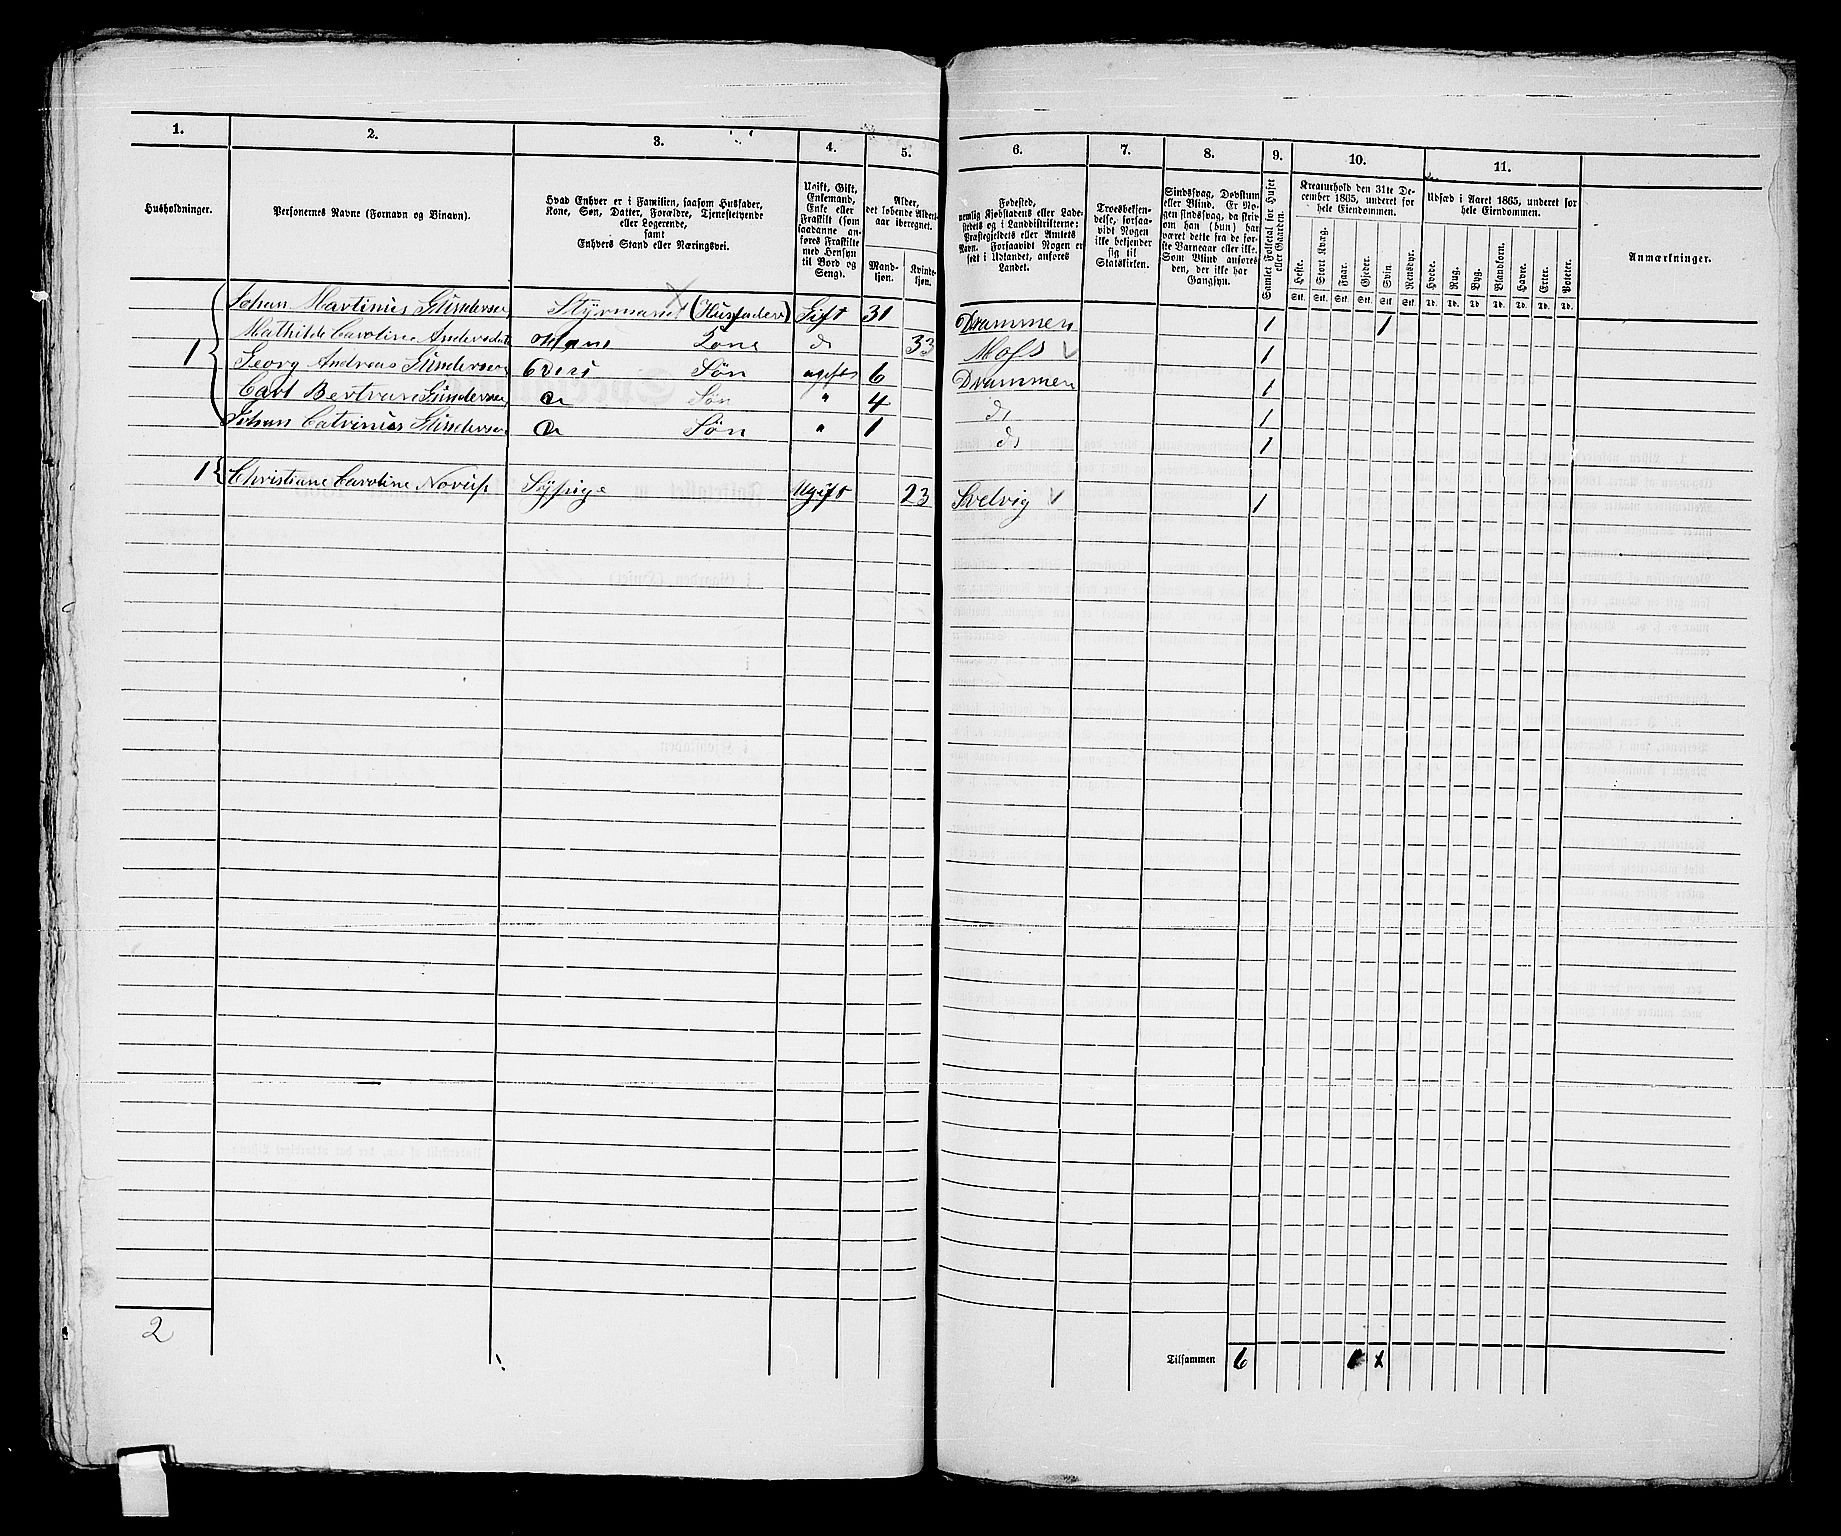 1. 2. 3. 4. 5. 6. 7. 8. 9. 10. 11.
Husholdninger.
Personernes Navne (Fornavn og Binavn).
Hvad Enhver er i Familien, saasom Husfader,
Kone, Søn, Datter, Forældre, Tjenestetyende
eller Logerende,
samt
Enhvers Stand eller Næringsvei.
Ugift, Gift,
Enkemand,
Enke eller
Fraskilt (som
saadanne an-
føres Fraskilte
med Hensyn
til Bord og
Seng).
Alder,
det løbende Alders-
aar iberegnet.
Mand-
kjøn.
Kvinde-
kjøn.
Fødested,
nemlig Kjøbstadens eller Lade-
stedets og i Landdistrikterne:
Præstegjeldets eller Amtets
Navn. Forsaavidt Nogen er
født i Udlandet, anføres
Landet.
Troesbekjen-
delse, forsaa-
vidt Nogen
ikke bekjender
sig til
Statskirken.
Sindssvag, Døvstum
eller Blind. Er No-
gen sindssvag, da skriv
om han (hun) har
været dette fra de før-
ste Barneaar eller ikke.
Som Blind anføres
den, der ikke har
Gangsyn.
Samlet Folketal for Huset
eller Gaarden.
Kreaturhold den 31te De-
cember 1865, underet for
hele Eiendommen.
Heste. Stort Kvæg. Faar. Gjeder. Svin. Rensdyr.
Stk. Stk. Stk. Stk. Stk. Stk.
Udsæd i Aaret 1865, underet for
hele Eiendommen.
Hvede. Rug. Byg. Blandkorn. Havre. Erter. Poteter.
Td. Td. Td. Td. Td. Td. Td.
Anmærkninger.
Johan Martinius Gundersen Styrmand (Husfader) Gift 31 Drammen 1 1
1 Mathilde Caroline Andersdat Hans Kone do 33 Moss 1
Georg Andreas Gundersen Søn ugift 6 Drammen 1
Carl Bertran Gundersen Søn " 4 do 1
Johan Catrinius Gundersen Søn " 1 do 1
1 Christiane Caroline Sypige Ugift 23 Svelvig 1
2
Tilsammen 6